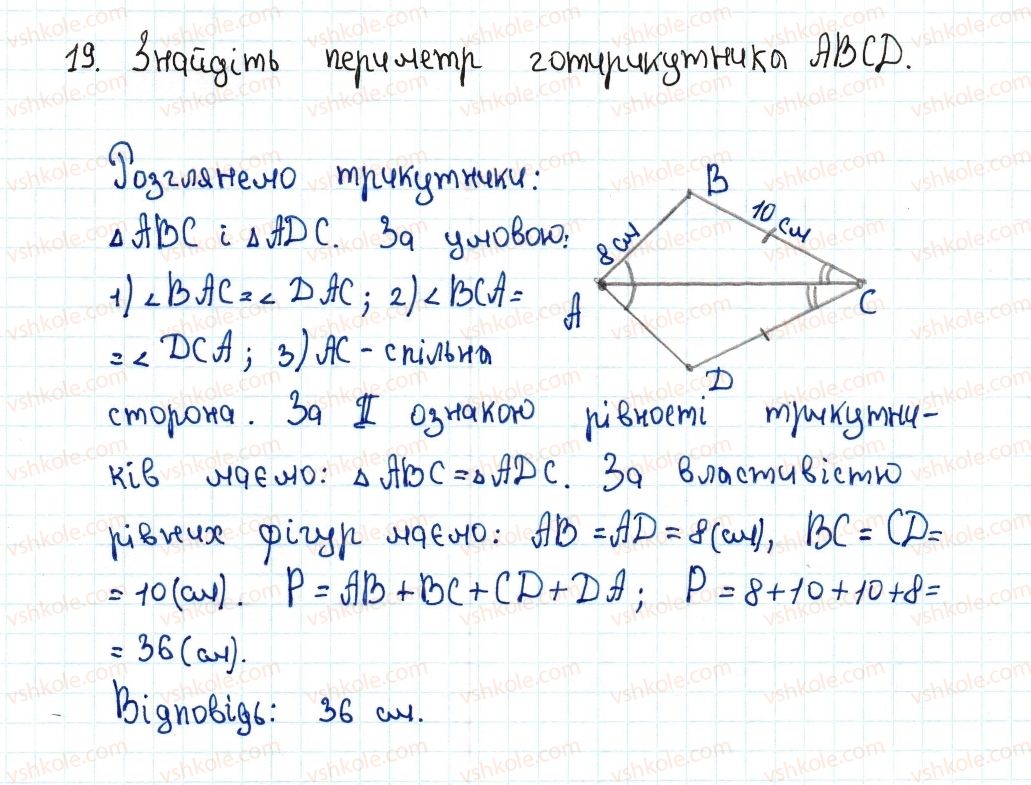 19. Знайдіть периметр чотирикутника ABCD.
Розглянемо трикутники:
△ABC і △ADC. За умовою:
1) ∠BAC = ∠DAC; 2) ∠BCA =
= ∠DCA; 3) AC - спільна
сторона. За II ознакою рівності трикутни-
ків маємо: △ABC = △ADC. За властивістю
рівних фігур маємо: AB = AD = 8 (см), BC = CD =
= 10 (см). P = AB + BC + CD + DA; P = 8 + 10 + 10 + 8 =
= 36 (см).
Відповідь: 36 см.
B
10 см
8 см
A
C
D
vshkole.com